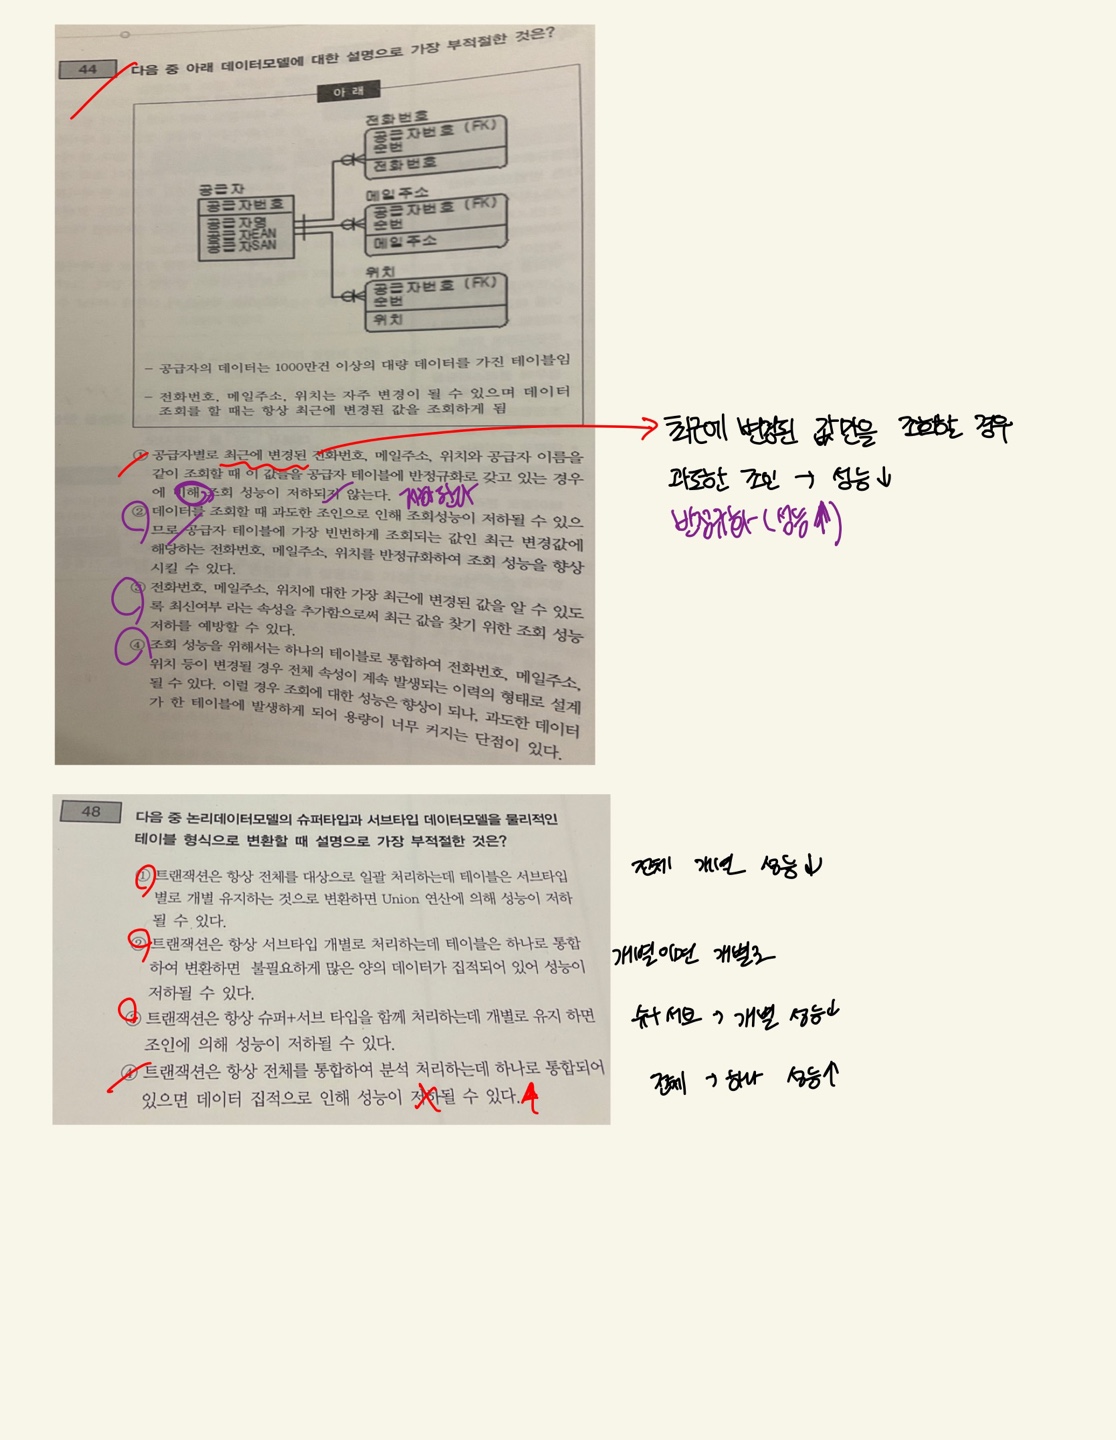 44 다음 중 아래 데이터모델에 대한 설명으로 가장 부적절한 것은?
아 래
전화번호
공급자번호 (FK)
순번
전화번호
공급자
공급자번호
공급자명
공급자EAN
공급자SAN
메일주소
공급자번호 (FK)
순번
메일주소
위치
공급자번호 (FK)
순번
위치
- 공급자의 데이터는 1000만건 이상의 대량 데이터를 가진 테이블임
- 전화번호, 메일주소, 위치는 자주 변경이 될 수 있으며 데이터
조회를 할 때는 항상 최근에 변경된 값을 조회하게 됨
① 공급자별로 최근에 변경된 전화번호, 메일주소, 위치와 공급자 이름을
같이 조회할 때 이 값들을 공급자 테이블에 반정규화로 갖고 있는 경우
에 비해 조회 성능이 저하되지 않는다. 저하한다
② 데이터를 조회할 때 과도한 조인으로 인해 조회성능이 저하될 수 있으
므로 공급자 테이블에 가장 빈번하게 조회되는 값인 최근 변경값에
해당하는 전화번호, 메일주소, 위치를 반정규화하여 조회 성능을 향상
시킬 수 있다.
③ 전화번호, 메일주소, 위치에 대한 가장 최근에 변경된 값을 알 수 있도
록 최신여부 라는 속성을 추가함으로써 최근 값을 찾기 위한 조회 성능
저하를 예방할 수 있다.
④ 조회 성능을 위해서는 하나의 테이블로 통합하여 전화번호, 메일주소,
위치 등이 변경될 경우 전체 속성이 계속 발생되는 이력의 형태로 설계
될 수 있다. 이럴 경우 조회에 대한 성능은 향상이 되나, 과도한 데이터
가 한 테이블에 발생하게 되어 용량이 너무 커지는 단점이 있다.
최근에 변경된 값만을 조회할 경우
과도한 조인 → 성능↓
반정규화 (성능↑)
48 다음 중 논리데이터모델의 슈퍼타입과 서브타입 데이터모델을 물리적인
테이블 형식으로 변환할 때 설명으로 가장 부적절한 것은?
① 트랜잭션은 항상 전체를 대상으로 일괄 처리하는데 테이블은 서브타입
별로 개별 유지하는 것으로 변환하면 Union 연산에 의해 성능이 저하
될 수 있다.
② 트랜잭션은 항상 서브타입 개별로 처리하는데 테이블은 하나로 통합
하여 변환하면 불필요하게 많은 양의 데이터가 집적되어 있어 성능이
저하될 수 있다.
③ 트랜잭션은 항상 슈퍼+서브 타입을 함께 처리하는데 개별로 유지 하면
조인에 의해 성능이 저하될 수 있다.
④ 트랜잭션은 항상 전체를 통합하여 분석 처리하는데 하나로 통합되어
있으면 데이터 집적으로 인해 성능이 저하될 수 있다.↑
전체 개별 성능↓
개별이면 개별로
슈+서브 → 개별 성능↓
전체 → 하나 성능↑